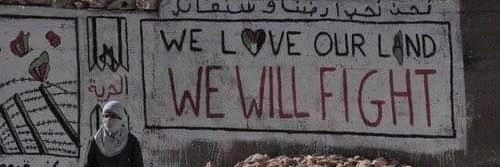 نحن نحب أرضنا و سنقاتل
WE LOVE OUR LAND
WE WILL FIGHT
الحرية